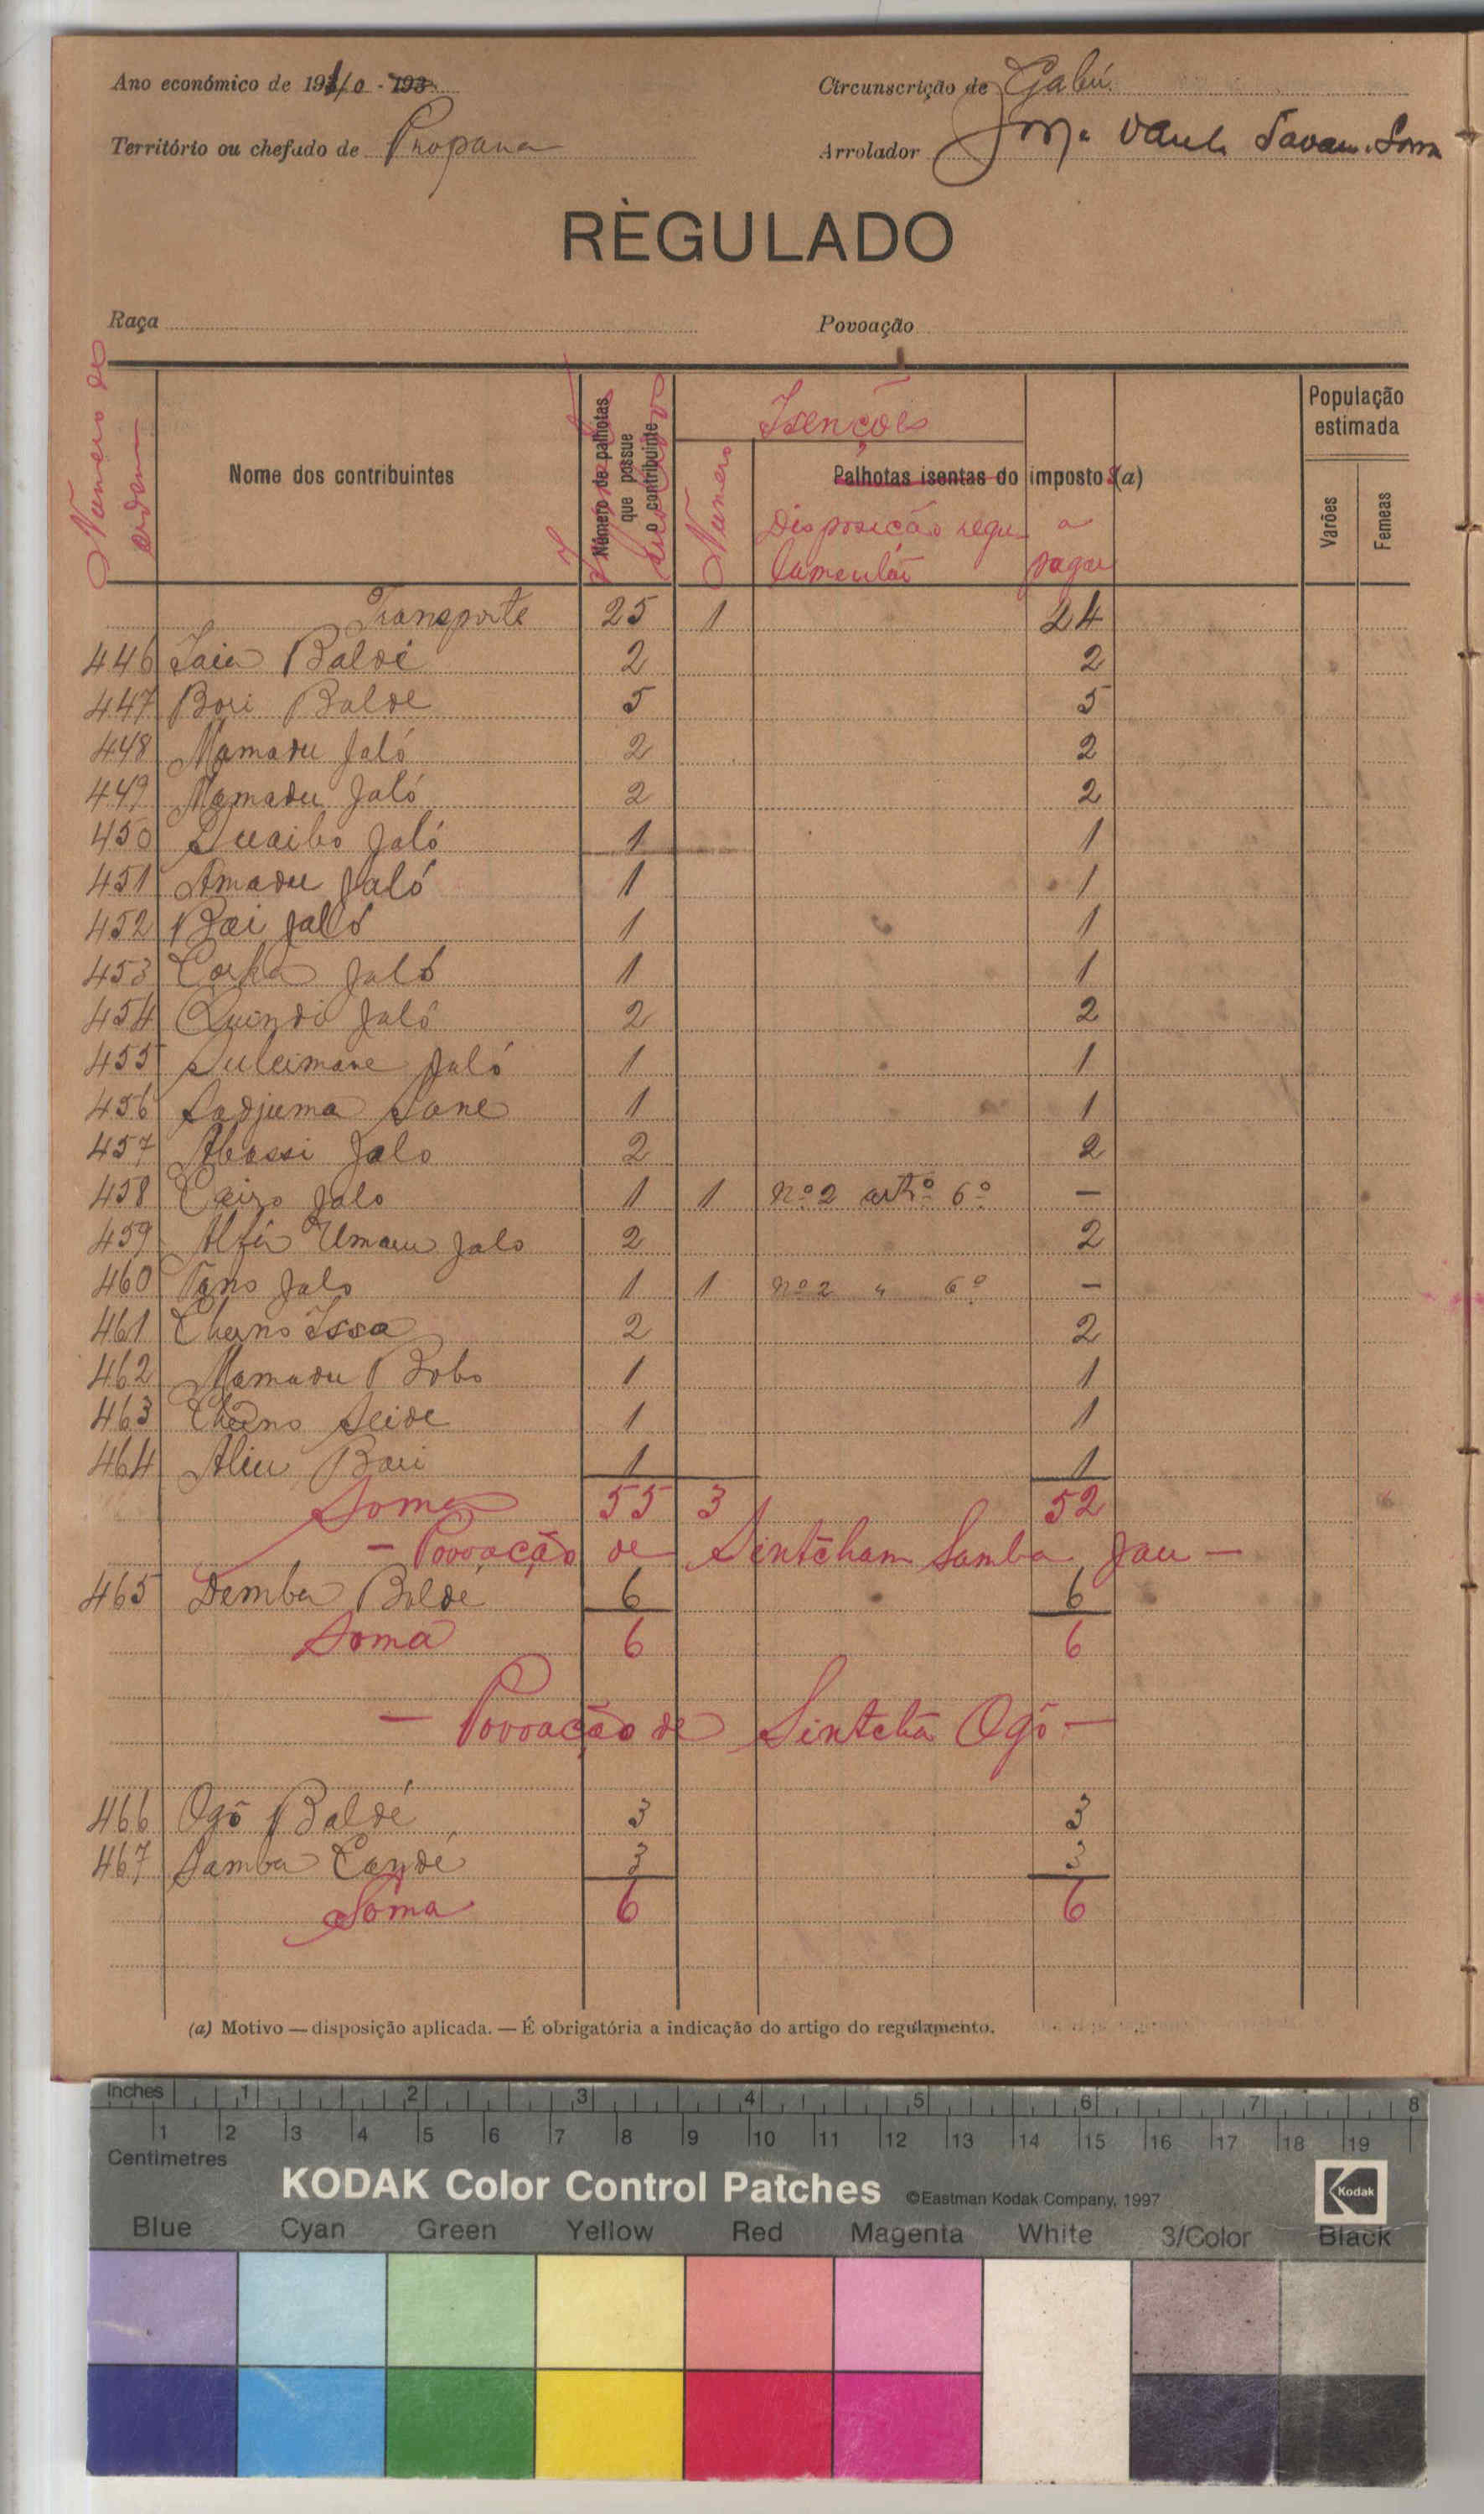 Ano económico de 194/0 - 193
Circunscrição de Gabú.
Território ou chefado de Propana
Arrolador
RÈGULADO
Raça
Povoação
Numero de ordem
Nome dos contribuintes
Número de palhotas que possue o contribuinte
Isenções
Numero
Palhotas isentas do imposto (a)
Disposição regu-
lamentar
a
pagar
População
estimada
Varões
Femeas
Transporte 25 1 24
446 Jaia Baldé 2 2
447 Bori Balde 5 5
448 Mamadu Jaló 2 2
449 Mamadu Jaló 2 2
450 Suaibo Jaló 1 1
451 Amadu Jaló 1 1
452 Bai Jaló 1 1
453 Jaló 1 1
454 Quindi Jaló 2 2
455 Suleimane Jaló 1 1
456 Sadjuma Sane 1 1
457 Abassi Jalo 2 2
458 Cairo Jalo 1 1 nº 2 artº 6º —
459 Alfa Umaru Jalo 2 2
460 Jalo 1 1 nº 2 " 6º —
461 Cherno Issa 2 2
462 Mamadu Bobo 1 1
463 Cherno Seide 1 1
464 Aliu Bari 1 1
Soma 55 3 52
— Povoação de Sintcham Samba Jau —
465 Demba Baldé 6 6
Soma 6 6
— Povoação de Sintchã Ogô —
466 Ogô Baldé 3 3
467 Samba Candé 3 3
Soma 6 6
(a) Motivo — disposição aplicada. — É obrigatória a indicação do artigo do regulamento.
Inches 1 2 3 4 5 6 7 8
1 2 3 4 5 6 7 8 9 10 11 12 13 14 15 16 17 18 19
Centimetres
KODAK Color Control Patches ©Eastman Kodak Company, 1997 Kodak
Blue Cyan Green Yellow Red Magenta White 3/Color Black